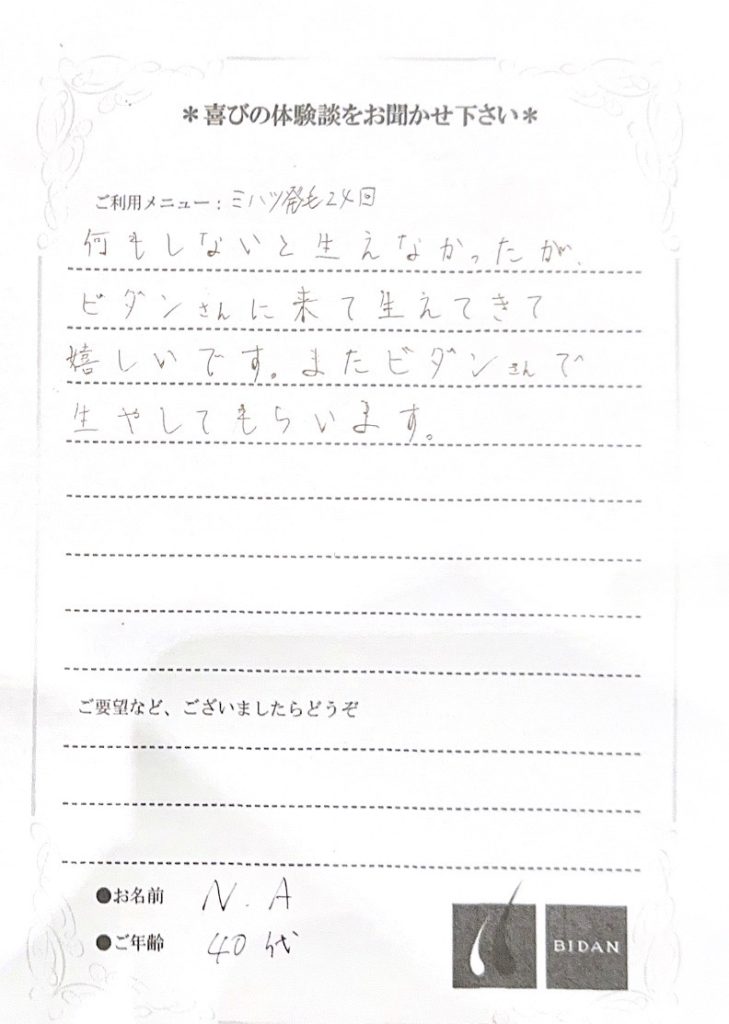 ＊喜びの体験談をお聞かせ下さい＊
ご利用メニュー：ミハツ発毛24回
何もしないと生えなかったが、
ビダンさんに来て生えてきて
嬉しいです。またビダンさんで
生やしてもらいます。
ご要望など、ございましたらどうぞ
●お名前 N.A
●ご年齢 40代
BIDAN